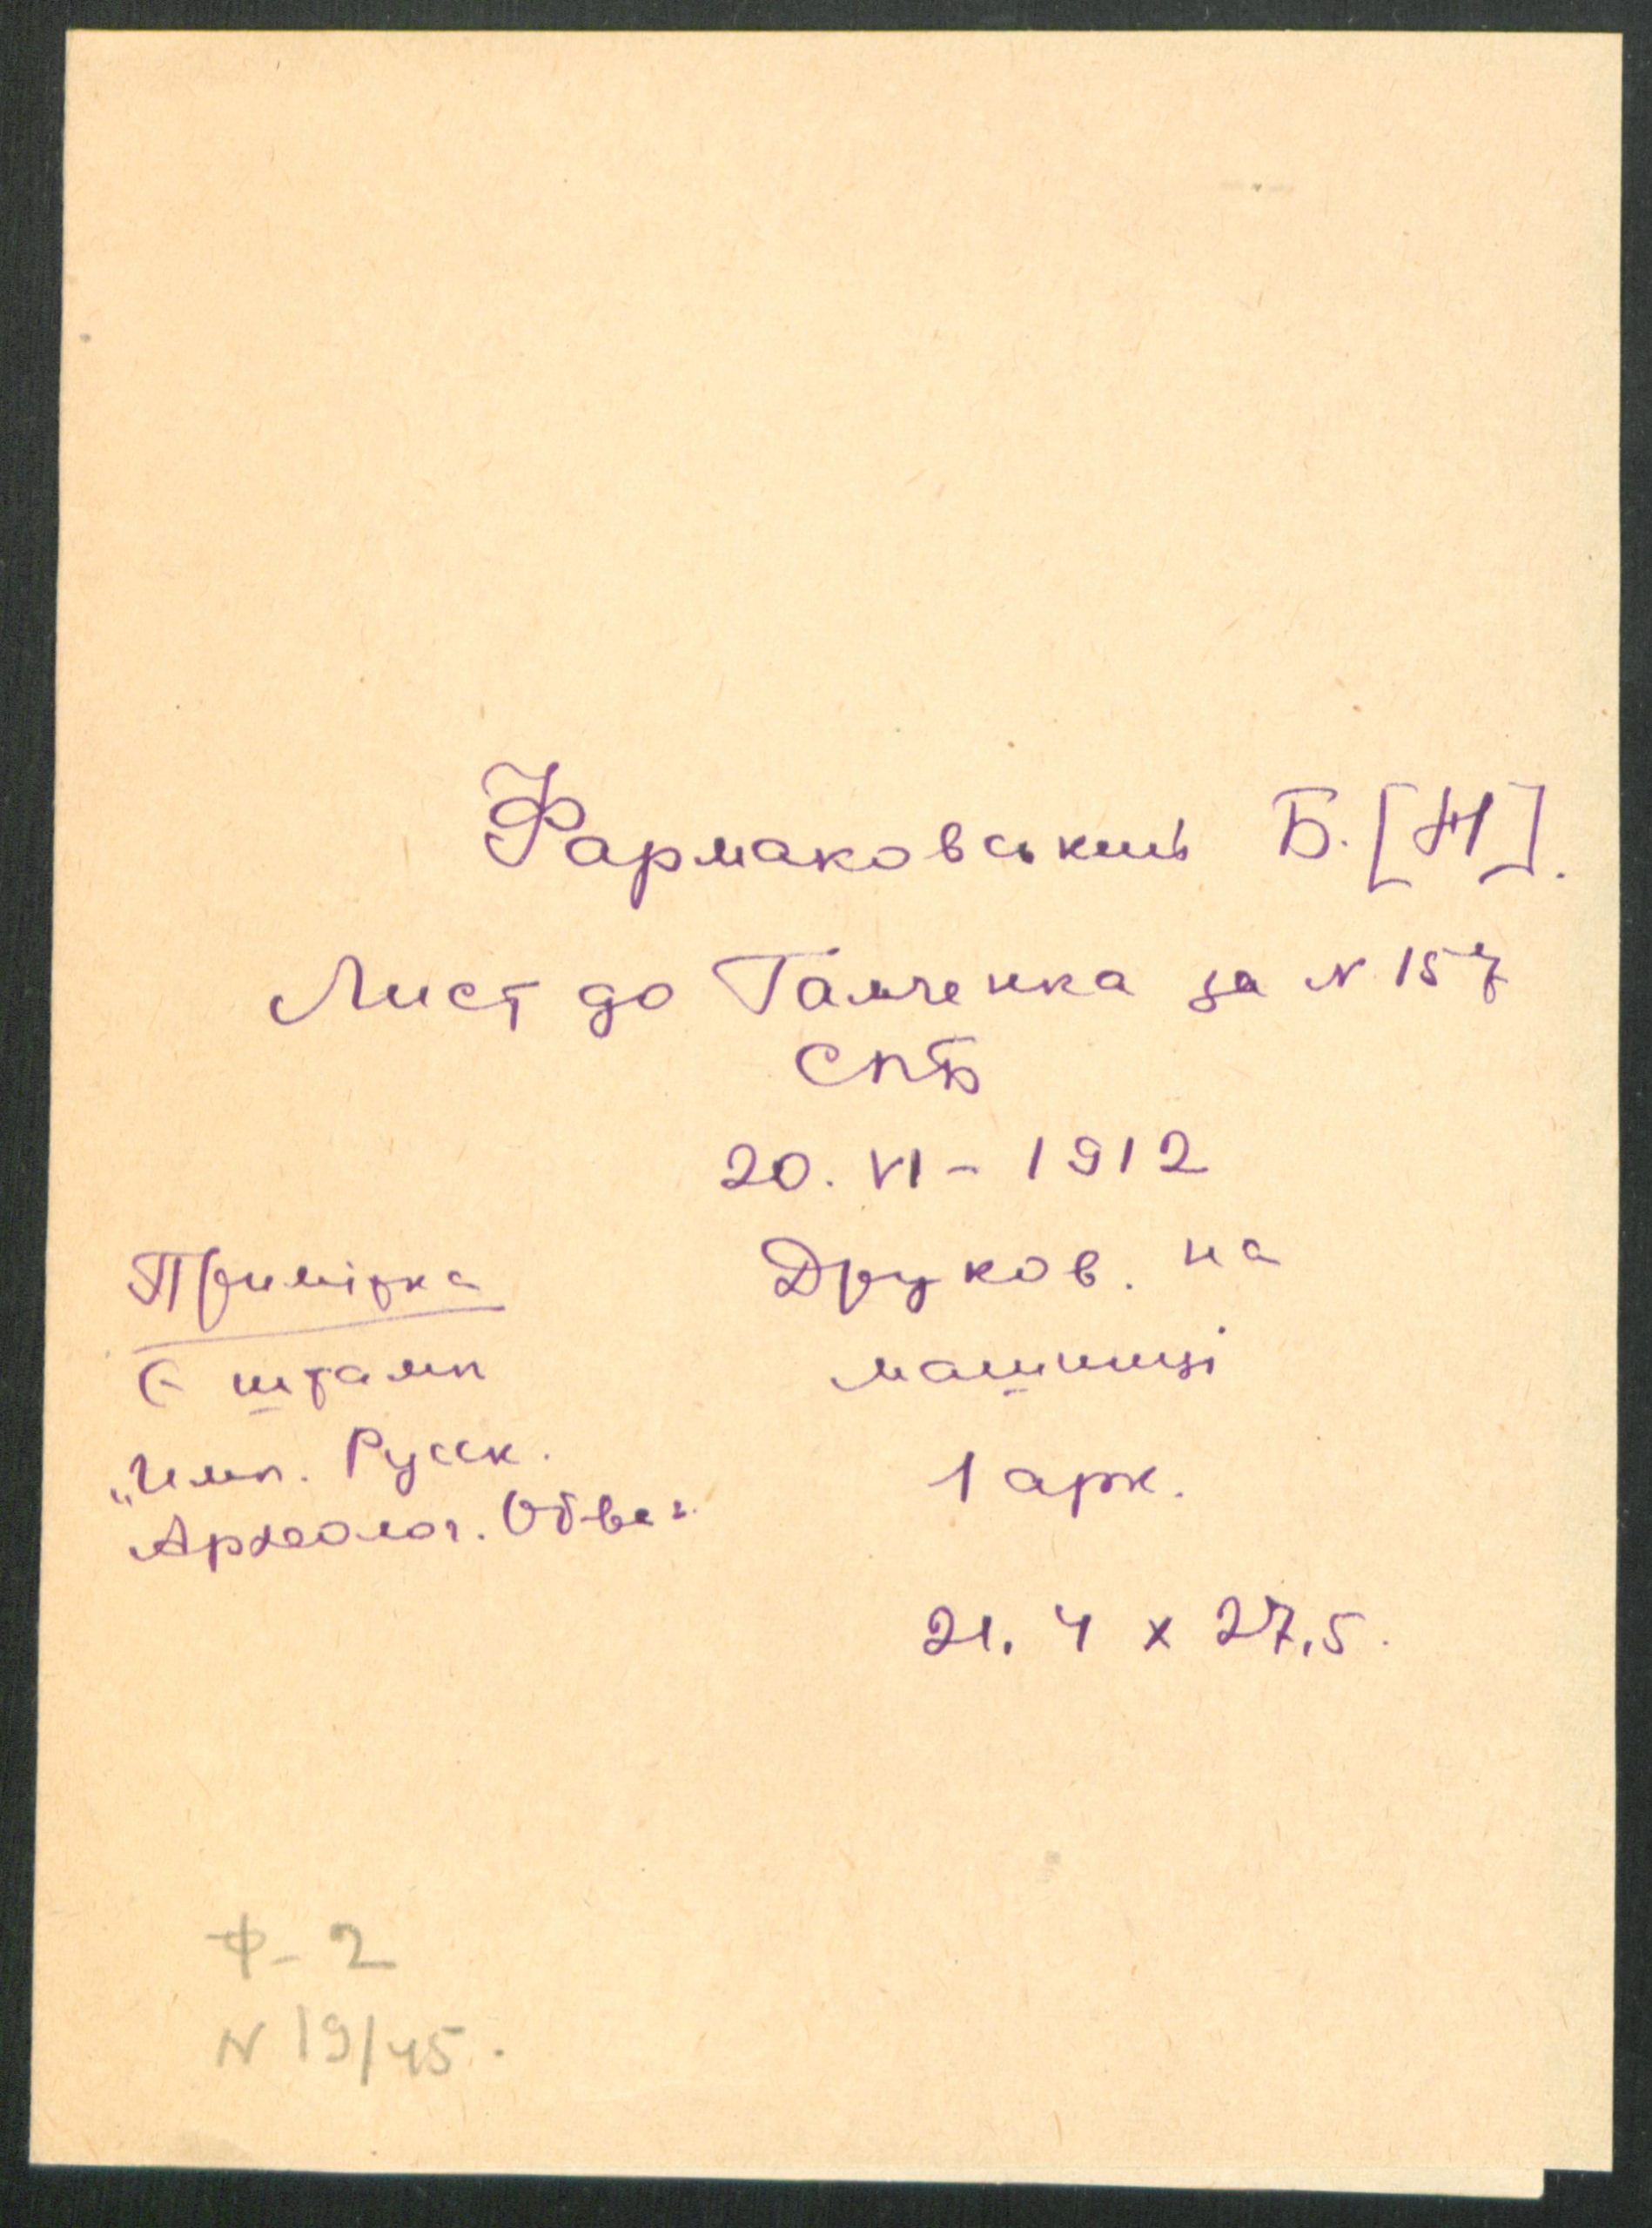 Фармаковський Б. [М].
Лист до Гамченка за N 157
СПБ
20. VI - 1912
Друков. на
машинці
1 арк.
21.4 x 27,5.
Примітка
Є штамп
„Имп. Русск.
Археолог. Об-ва".
Ф - 2
N 19/45.